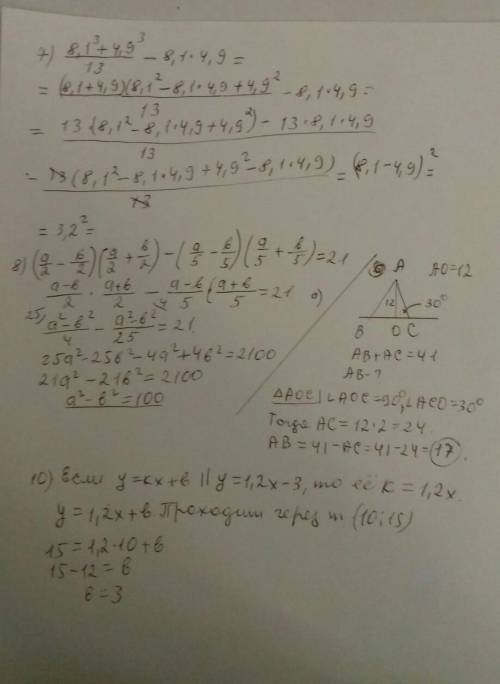 7) (8,1³+4,9³)/13 − 8,1·4,9 =
= (8,1+4,9)(8,1²−8,1·4,9+4,9²)/13 − 8,1·4,9 =
= (13(8,1²−8,1·4,9+4,9²) − 13·8,1·4,9)/13
= 13(8,1²−8,1·4,9+4,9²−8,1·4,9)/13 = (8,1−4,9)² =
= 3,2² =
8) (a/2 − b/2)(a/2 + b/2) − (a/5 − b/5)(a/5 + b/5) = 21
(a−b)/2 · (a+b)/2 − (a−b)/5 (a+b)/5 = 21
25/ (a²−b²)/4 − 4/ (a²−b²)/25 = 21
25a²−25b²−4a²+4b²=2100
21a²−21b²=2100
a²−b²=100
9)
A AO=12
12 30°
B O C
AB+AC=41
AB−?
△AOC | ∠AOC=90°, ∠ACO=30°
Тогда AC=12·2=24.
AB=41−AC=41−24=17.
10) Если y=kx+b || y=1,2x−3, то её K=1,2x.
y=1,2x+b Проходит через т (10;15)
15=1,2·10+b
15−12=b
b=3